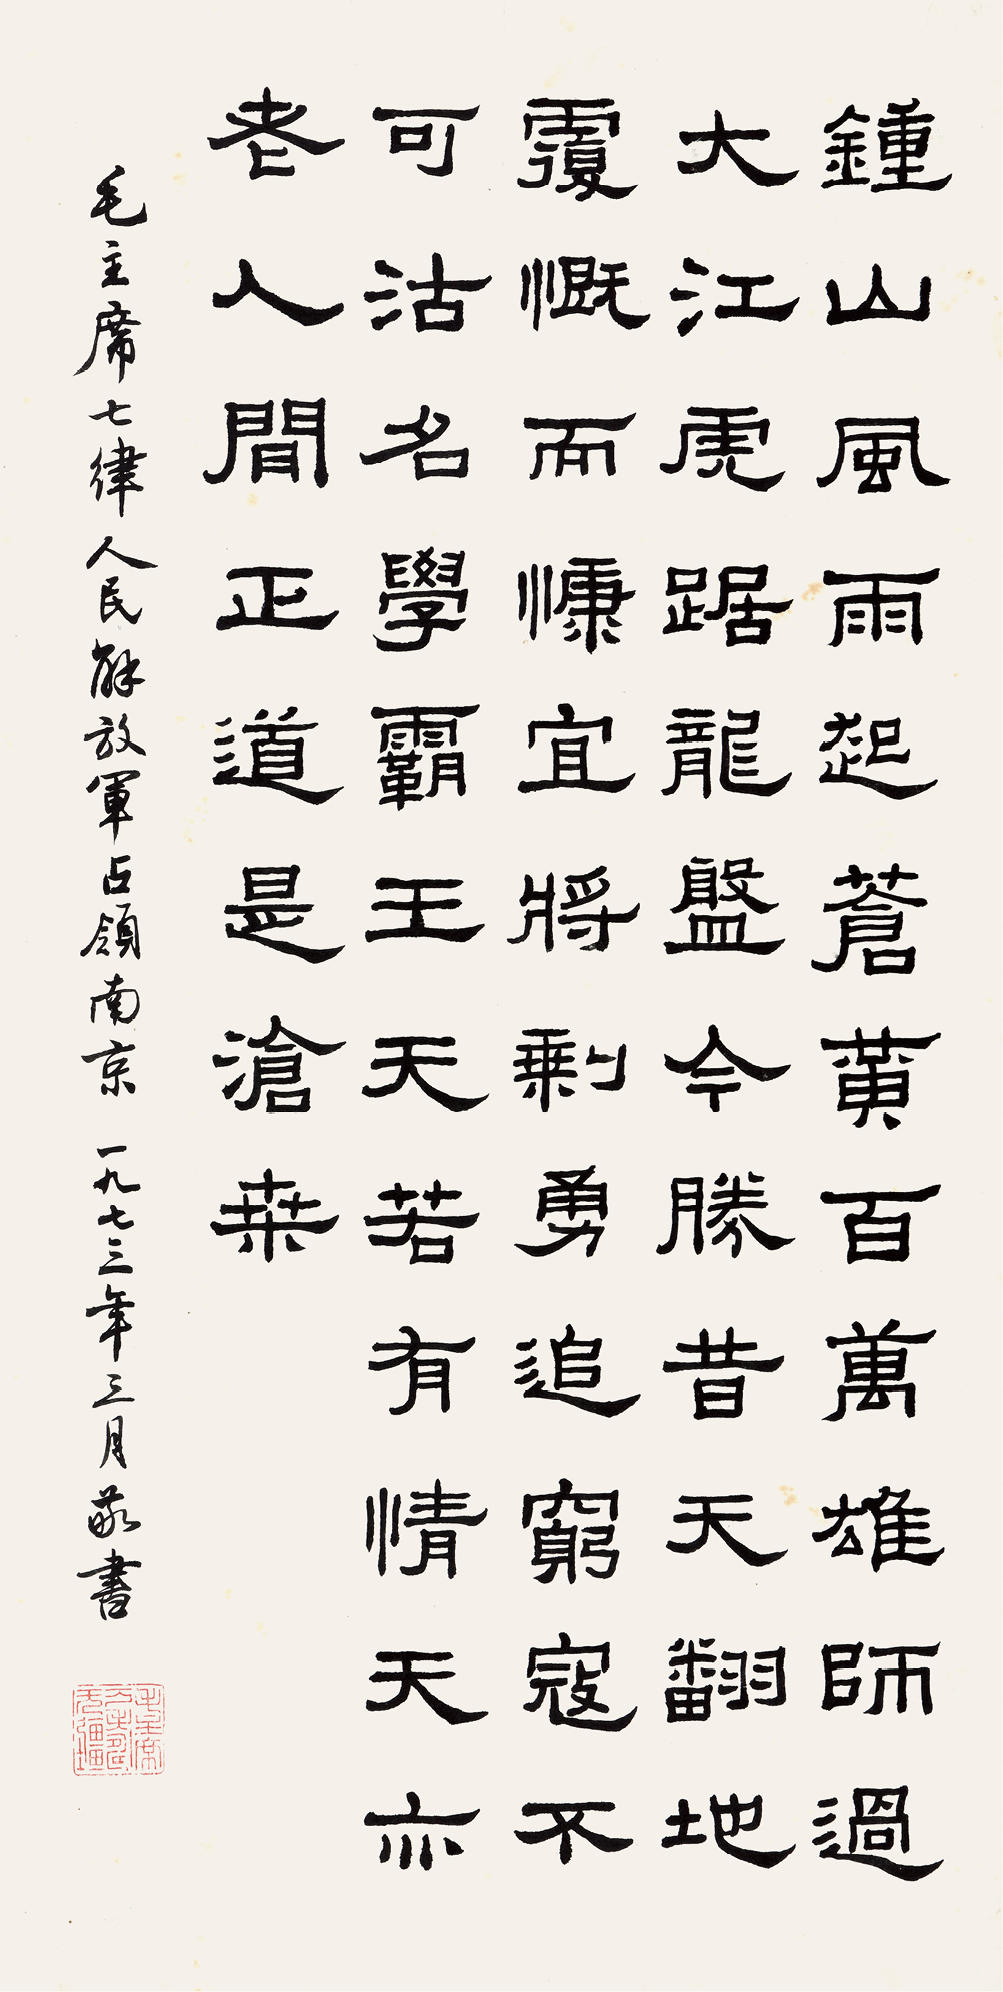 鍾山風雨起蒼黃百萬雄師過
大江虎踞龍盤今勝昔天翻地
覆慨而慷宜將剩勇追窮寇不
可沽名學霸王天若有情天亦
老人間正道是滄桑
毛主席七律人民解放軍占領南京 一九七三年三月敬書
毛主席
万壽
无疆